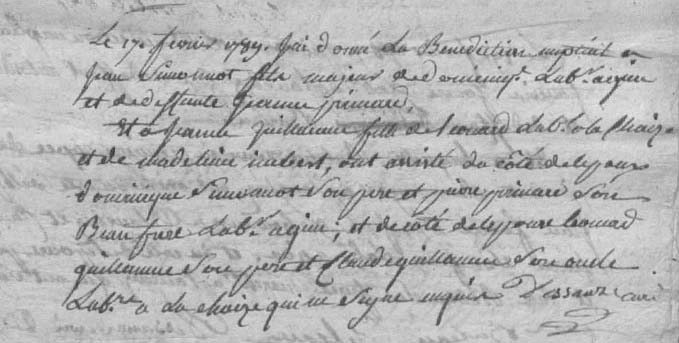 Le 17e fevrier 1789. jai donné La Benediction nuptiale a
jean Simonnot fils majeur de dominiq. Lab.r a gien
et de deffunte jeanne primard,
Et a jeanne guillaume fille de leonard Lab.r a la Chaize
et de madeleine imbert, ont assisté du côté de lepoux
dominique Simonnot Son pere et pierre primard Son
Beau frere Lab.r a gien; et du coté de lepouse leonard
guillaume Son pere et Claude guillaume Son oncle
Lab.re a La chaize qui ne Signe enquis